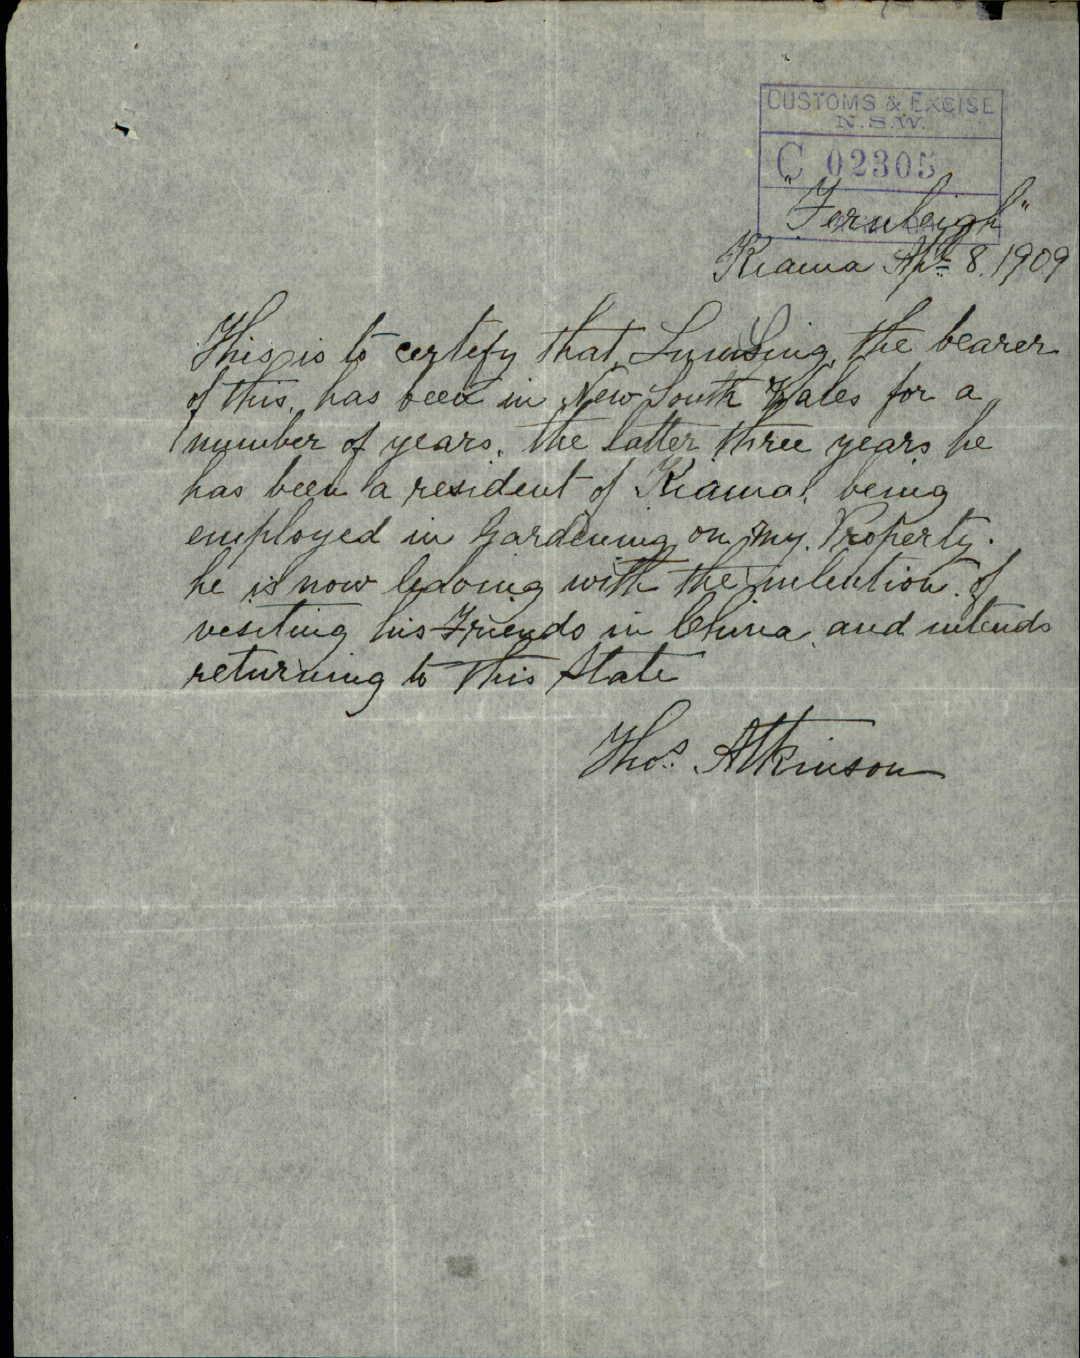 CUSTOMS & EXCISE
N.S.W.
C 02305
"Fernleigh"
Kiama Apl 8. 1909
This is to certify that Sing, the bearer
of this, has been in New South Wales for a
number of years. the latter three years he
has been a resident of Kiama, being
employed in Gardening on my Property.
he is now leaving with the intention of
vesiting his Friends in China and intends
returning to this State
Thos. Atkinson